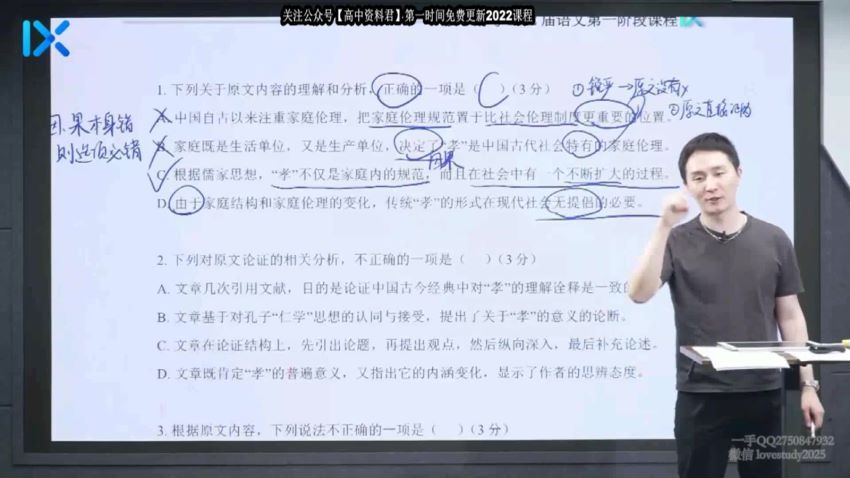 关注公众号【高中资料君】第一时间免费更新2022课程
届语文第一阶段课程
1. 下列关于原文内容的理解和分析，正确的一项是（ ）(3分)
①锐评→原文没有
A. 中国自古以来注重家庭伦理，把家庭伦理规范置于比社会伦理制度更重要的位置。
B. 家庭既是生活单位，又是生产单位，决定了“孝”是中国古代社会特有的家庭伦理。
因果
C. 根据儒家思想，“孝”不仅是家庭内的规范，而且在社会中有一个不断扩大的过程。
D. 由于家庭结构和家庭伦理的变化，传统“孝”的形式在现代社会无提倡的必要。
果本身错
则选项必错
2. 下列对原文论证的相关分析，不正确的一项是（ ）(3分)
A. 文章几次引用文献，目的是论证中国古今经典中对“孝”的理解诠释是一致的
B. 文章基于对孔子“仁学”思想的认同与接受，提出了关于“孝”的意义的论断。
C. 文章在论证结构上，先引出论题，再提出观点，然后纵向深入，最后补充论述。
D. 文章既肯定“孝”的普遍意义，又指出它的内涵变化，显示了作者的思辨态度。
3. 根据原文内容，下列说法不正确的一项是（ ）(3分)
一手QQ2750847932
微信 lovestudy2025